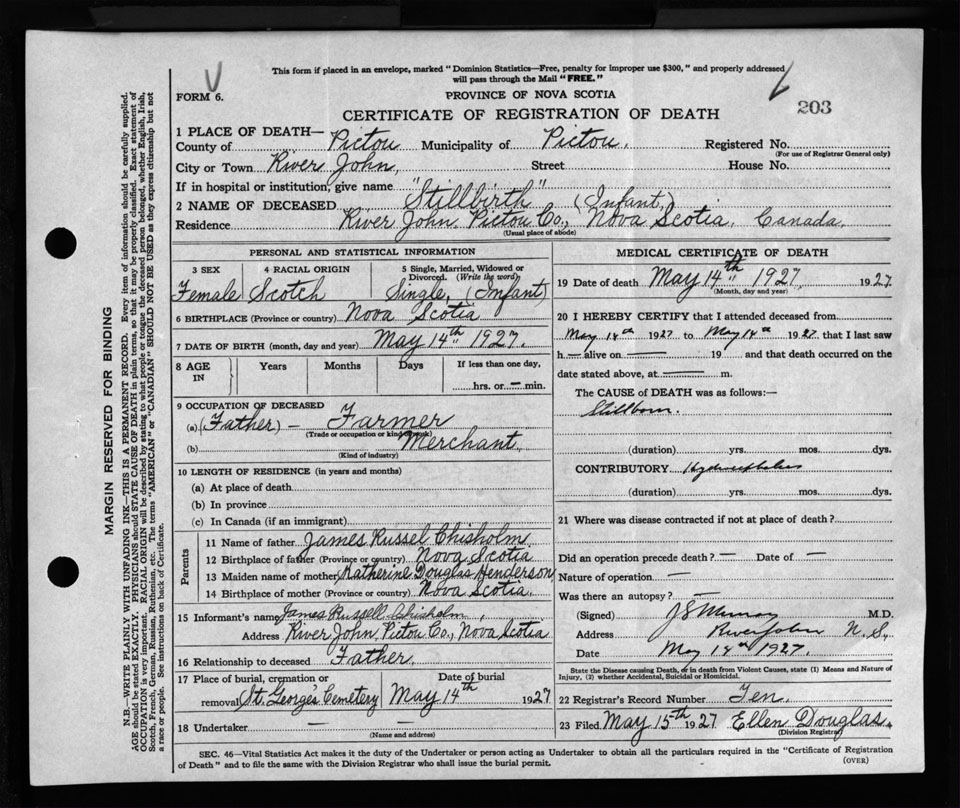 This form if placed in an envelope, marked "Dominion Statistics—Free, penalty for improper use $300," and properly addressed
will pass through the Mail "FREE."
FORM 6.
PROVINCE OF NOVA SCOTIA
203
CERTIFICATE OF REGISTRATION OF DEATH
1 PLACE OF DEATH—
County of Pictou Municipality of Pictou. Registered No.
(For use of Registrar General only)
City or Town River John, Street House No.
If in hospital or institution, give name "Stillbirth" (Infant,)
2 NAME OF DECEASED
Residence River John. Pictou Co., Nova Scotia, Canada.
(Usual place of abode)
PERSONAL AND STATISTICAL INFORMATION
3 SEX 4 RACIAL ORIGIN 5 Single, Married, Widowed or Divorced. (Write the word)
Female Scotch Single, (Infant)
6 BIRTHPLACE (Province or country) Nova Scotia
7 DATE OF BIRTH (month, day and year) May 14th 1927.
8 AGE IN Years Months Days If less than one day,
hrs. or — min.
9 OCCUPATION OF DECEASED
(a) (Father) — Farmer
(Trade or occupation or kind of work)
(b) Merchant.
(Kind of industry)
10 LENGTH OF RESIDENCE (in years and months)
(a) At place of death
(b) In province
(c) In Canada (if an immigrant)
Parents
11 Name of father James Russel Chisholm
12 Birthplace of father (Province or country) Nova Scotia
13 Maiden name of mother Katherine Douglas Henderson
14 Birthplace of mother (Province or country) Nova Scotia.
15 Informant's name James Russell Chisholm,
Address River John, Pictou Co., Nova Scotia
16 Relationship to deceased Father.
17 Place of burial, cremation or removal Date of burial
St. George's Cemetery May 14th 1927
18 Undertaker — —
(Name and address)
MEDICAL CERTIFICATE OF DEATH
19 Date of death May 14th 1927. 1927
(Month, day and year)
20 I HEREBY CERTIFY that I attended deceased from
May 14th 1927 to May 14th 1927 that I last saw
h — alive on — 19 and that death occurred on the
date stated above, at — m.
The CAUSE of DEATH was as follows:—
Stillborn.
(duration) yrs. mos. dys.
CONTRIBUTORY Hydrocephalus
(duration) yrs. mos. dys.
21 Where was disease contracted if not at place of death?
Did an operation precede death? — Date of —
Nature of operation —
Was there an autopsy? —
(Signed) J S Murray M.D.
Address River John N.S.
Date May 14th 1927.
State the Disease causing Death, or in death from Violent Causes, state (1) Means and Nature of
Injury, (3) whether Accidental, Suicidal or Homicidal.
22 Registrar's Record Number Ten.
23 Filed May 15th 1927 Ellen Douglas.
(Division Registrar)
SEC. 46—Vital Statistics Act makes it the duty of the Undertaker or person acting as Undertaker to obtain all the particulars required in the "Certificate of Registration
of Death" and to file the same with the Division Registrar who shall issue the burial permit.
(OVER)
MARGIN RESERVED FOR BINDING
N.B.—WRITE PLAINLY WITH UNFADING INK—THIS IS A PERMANENT RECORD. Every item of information should be carefully supplied.
AGE should be stated EXACTLY. PHYSICIANS should STATE CAUSE OF DEATH in plain terms, so that it may be properly classified. Exact statement of
OCCUPATION is very important. RACIAL ORIGIN will be described by stating to what people or tongue the deceased person belonged, whether English, Irish,
Scotch, French, German, Russian, Ruthenian, etc. The terms "AMERICAN" or "CANADIAN" SHOULD NOT BE USED as they express citizenship but not
a race or people. See instructions on back of Certificate.